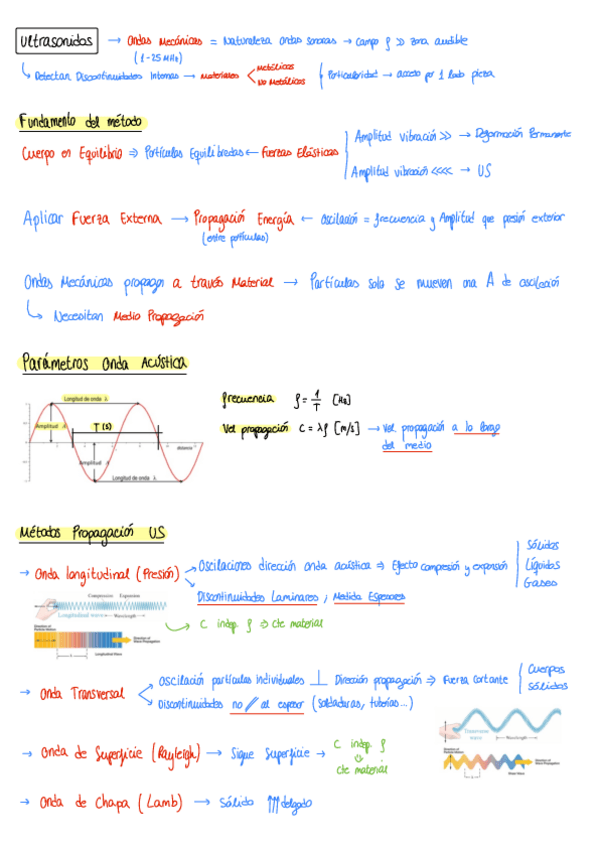 Ultrasonidos → Ondas Mecánicas = Naturaleza ondas sonoras → Campo f >> zona audible
(1-25 MHz)
↳ Detectan Discontinuidades Internas → Materiales < Metálicos
No Metálicos
Particularidad → acceso por 1 lado pieza
Fundamento del método
Cuerpo en Equilibrio ⇒ Partículas Equilibradas ← Fuerzas Elásticas
Amplitud vibración >> → Deformación Permanente
Amplitud vibración <<<< → US
Aplicar Fuerza Externa → Propagación Energía ← Oscilación = frecuencia y Amplitud que presión exterior
(entre partículas)
Ondas Mecánicas propagan a través Material → Partículas solo se mueven una A de oscilación
↳ Necesitan Medio Propagación
Parámetros Onda Acústica
Longitud de onda λ
Amplitud A
T (s)
distancia
Amplitud A
Longitud de onda λ
frecuencia f = 1/T [Hz]
Vel propagación C = λf [m/s] → Vel. propagación a lo largo
del medio
Métodos Propagación US
→ Onda longitudinal (Presión)
Oscilaciones dirección onda acústica ⇒ Efecto compresión y expansión
Sólidos
Líquidos
Gases
Discontinuidades Laminares, Medida Espesores
Compression Expansion
Longitudinal wave
Wavelength
Direction of Wave Propagation
Longitudinal Wave
→ C indep. f ⇒ Cte material
→ Onda Transversal
Oscilación partículas individuales ⊥ Dirección propagación ⇒ Fuerza Cortante
Cuerpos
Sólidos
Discontinuidades no // al espesor (soldaduras, tuberías...)
Transverse wave
Wavelength
Direction of Wave Propagation
Shear Wave
→ Onda de Superficie (Rayleigh) → Sigue Superficie → C indep f
⇓
cte material
→ Onda de Chapa (Lamb) → Sólido ↑↑↑ delgado